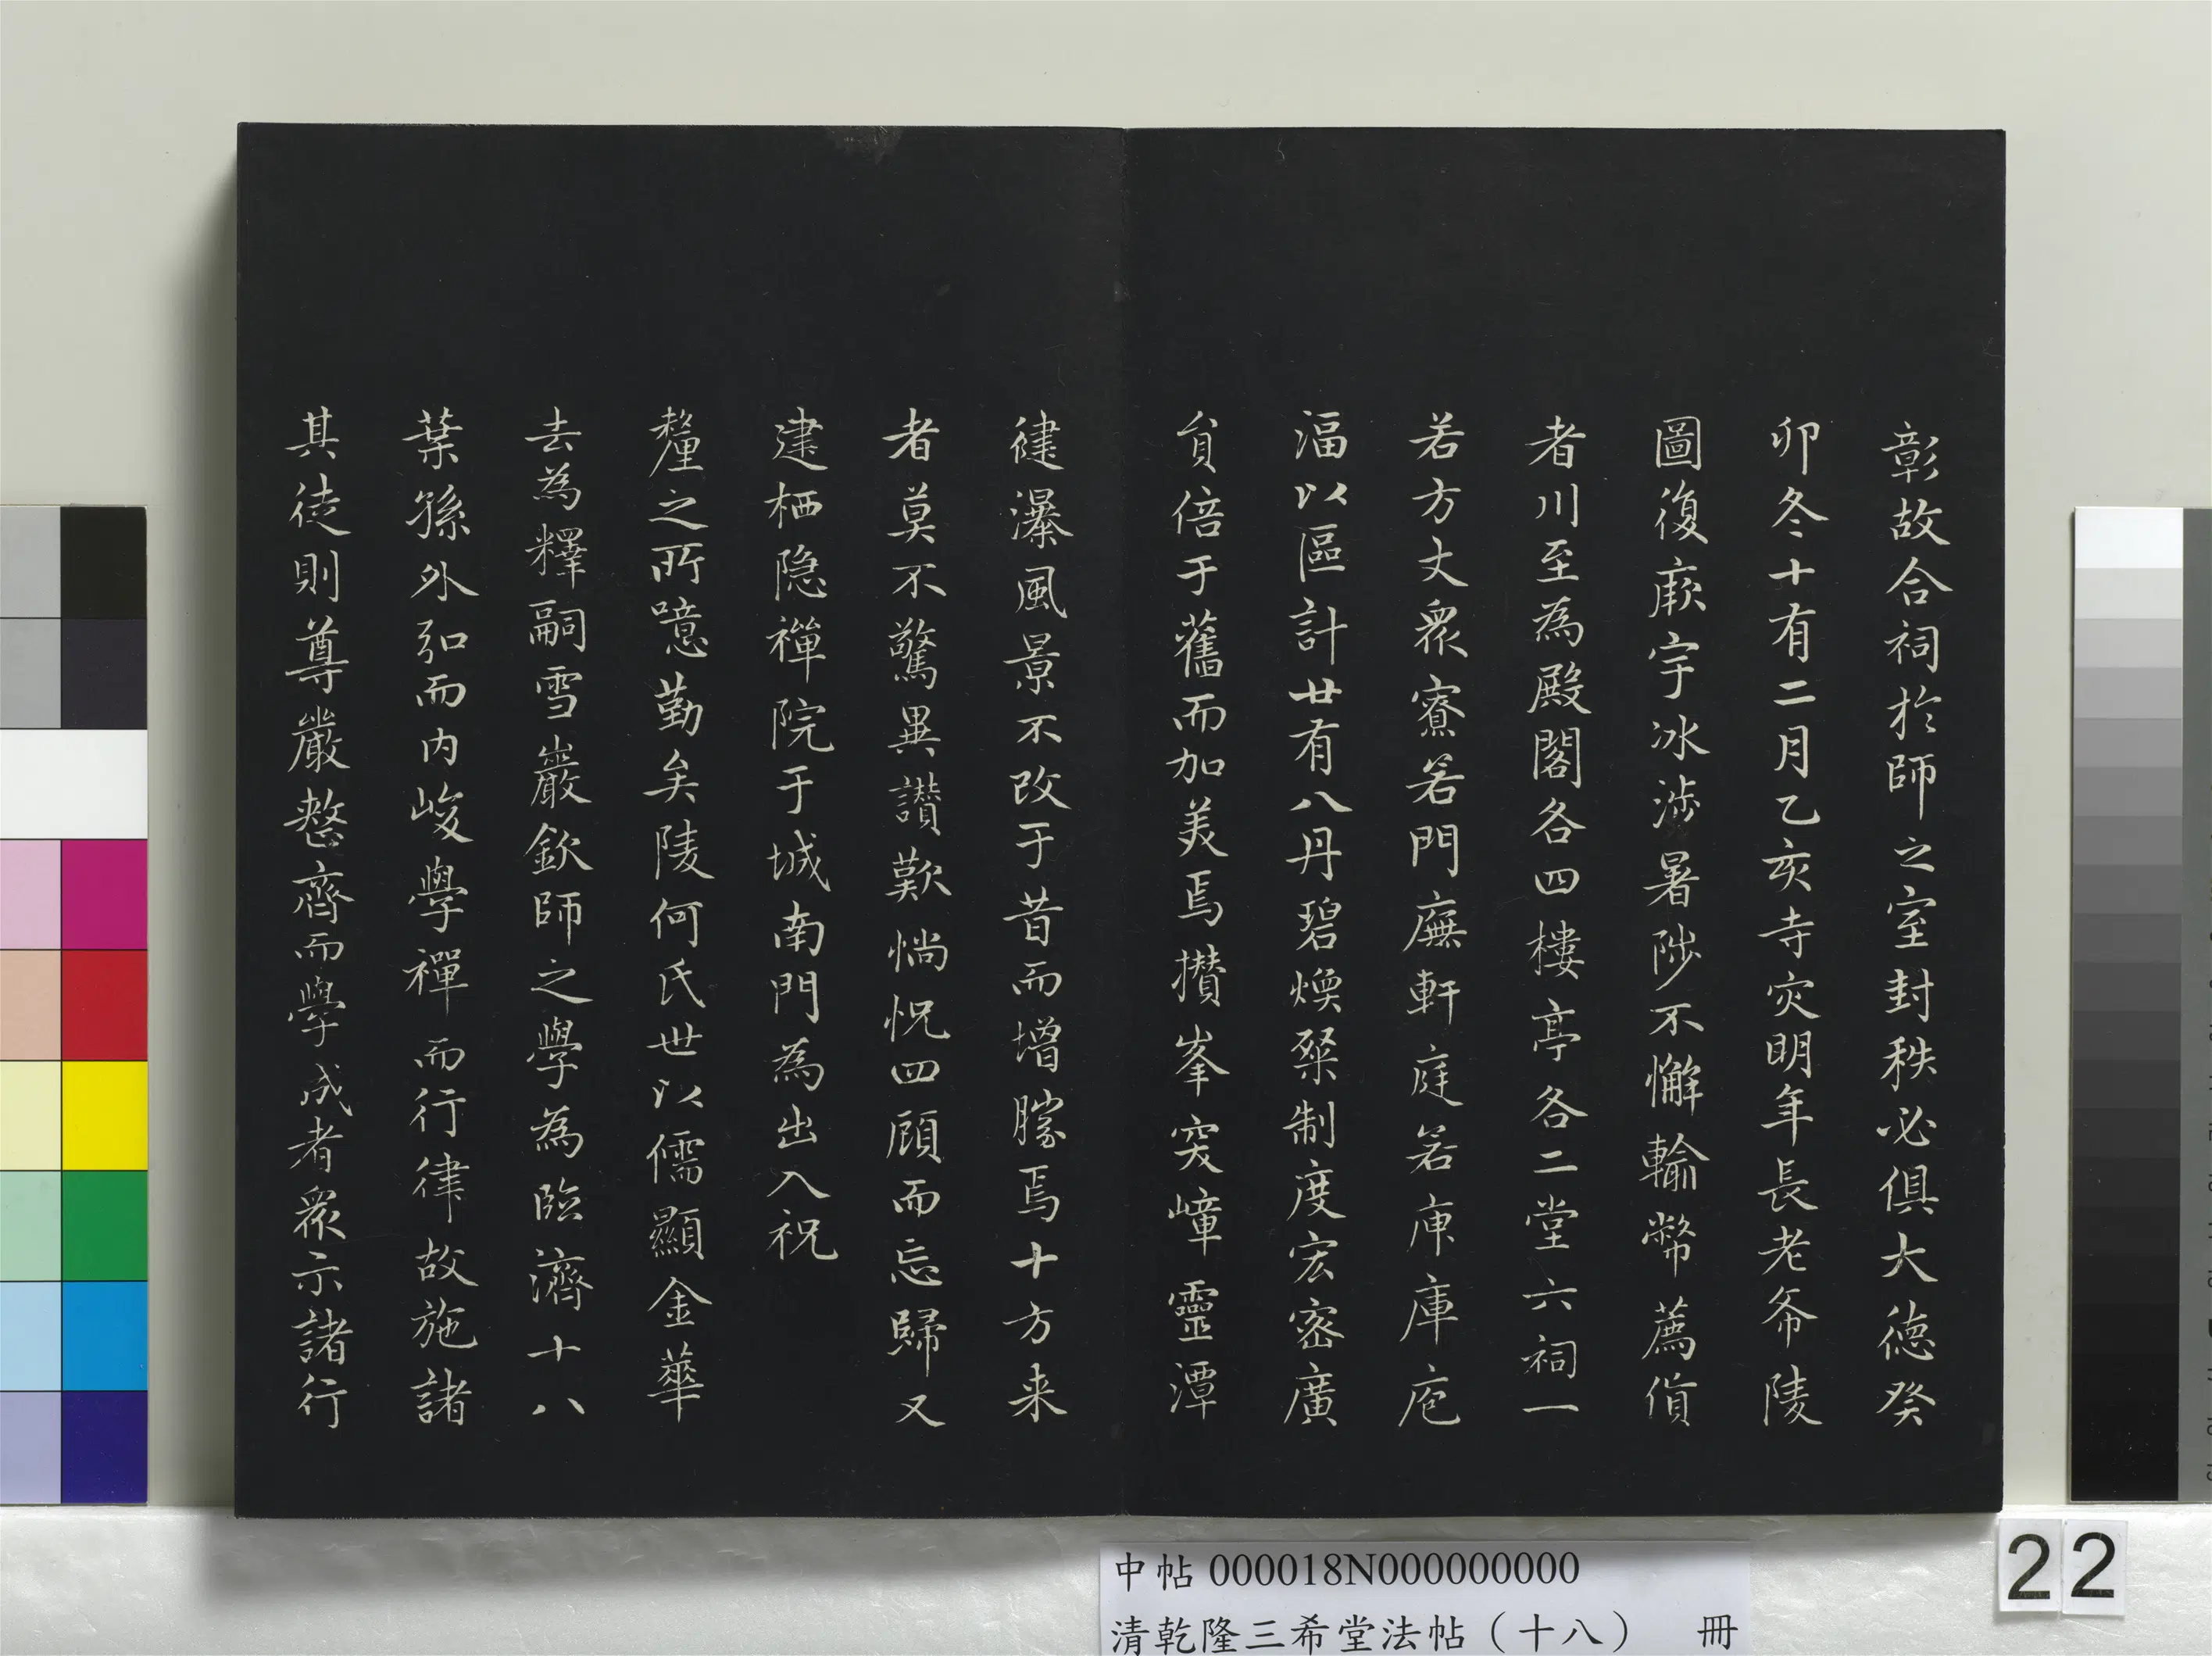 彰故合祠於師之室封秩必俱大德癸
卯冬十有二月乙亥寺灾明年長老爷陵
圖復厥宇冰涉暑陟不懈輸幣薦貨
者川至為殿閣各四樓亭各二堂六祠一
若方丈衆寮若門廡軒庭若庾庫庖
湢以區計廿有八丹碧煥粲制度宏密廣
貟倍于舊而加美焉攢峯突嶂靈潭
健瀑風景不改于昔而增勝焉十方来
者莫不驚異讃歎惝怳四顧而忘歸又
建栖隐禪院于城南門為出入祝
釐之所噫勤矣陵何氏世以儒顯金華
去為釋嗣雪巖欽師之學為臨濟十八
葉孫外弘而内峻學禪而行律故施諸
其徒則尊嚴整齊而學成者衆示諸行
中帖 000018N000000000
清乾隆三希堂法帖（十八） 冊
22